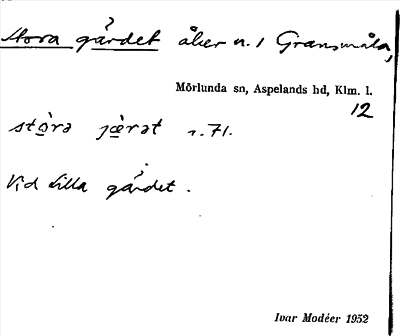 Stora gärdet åker n. 1 Gransmåla,
Mörlunda sn, Aspelands hd, Klm. l.
12
stòrə jæ̀rət r. 71.
Vid Lilla gärdet.
Ivar Modéer 1952